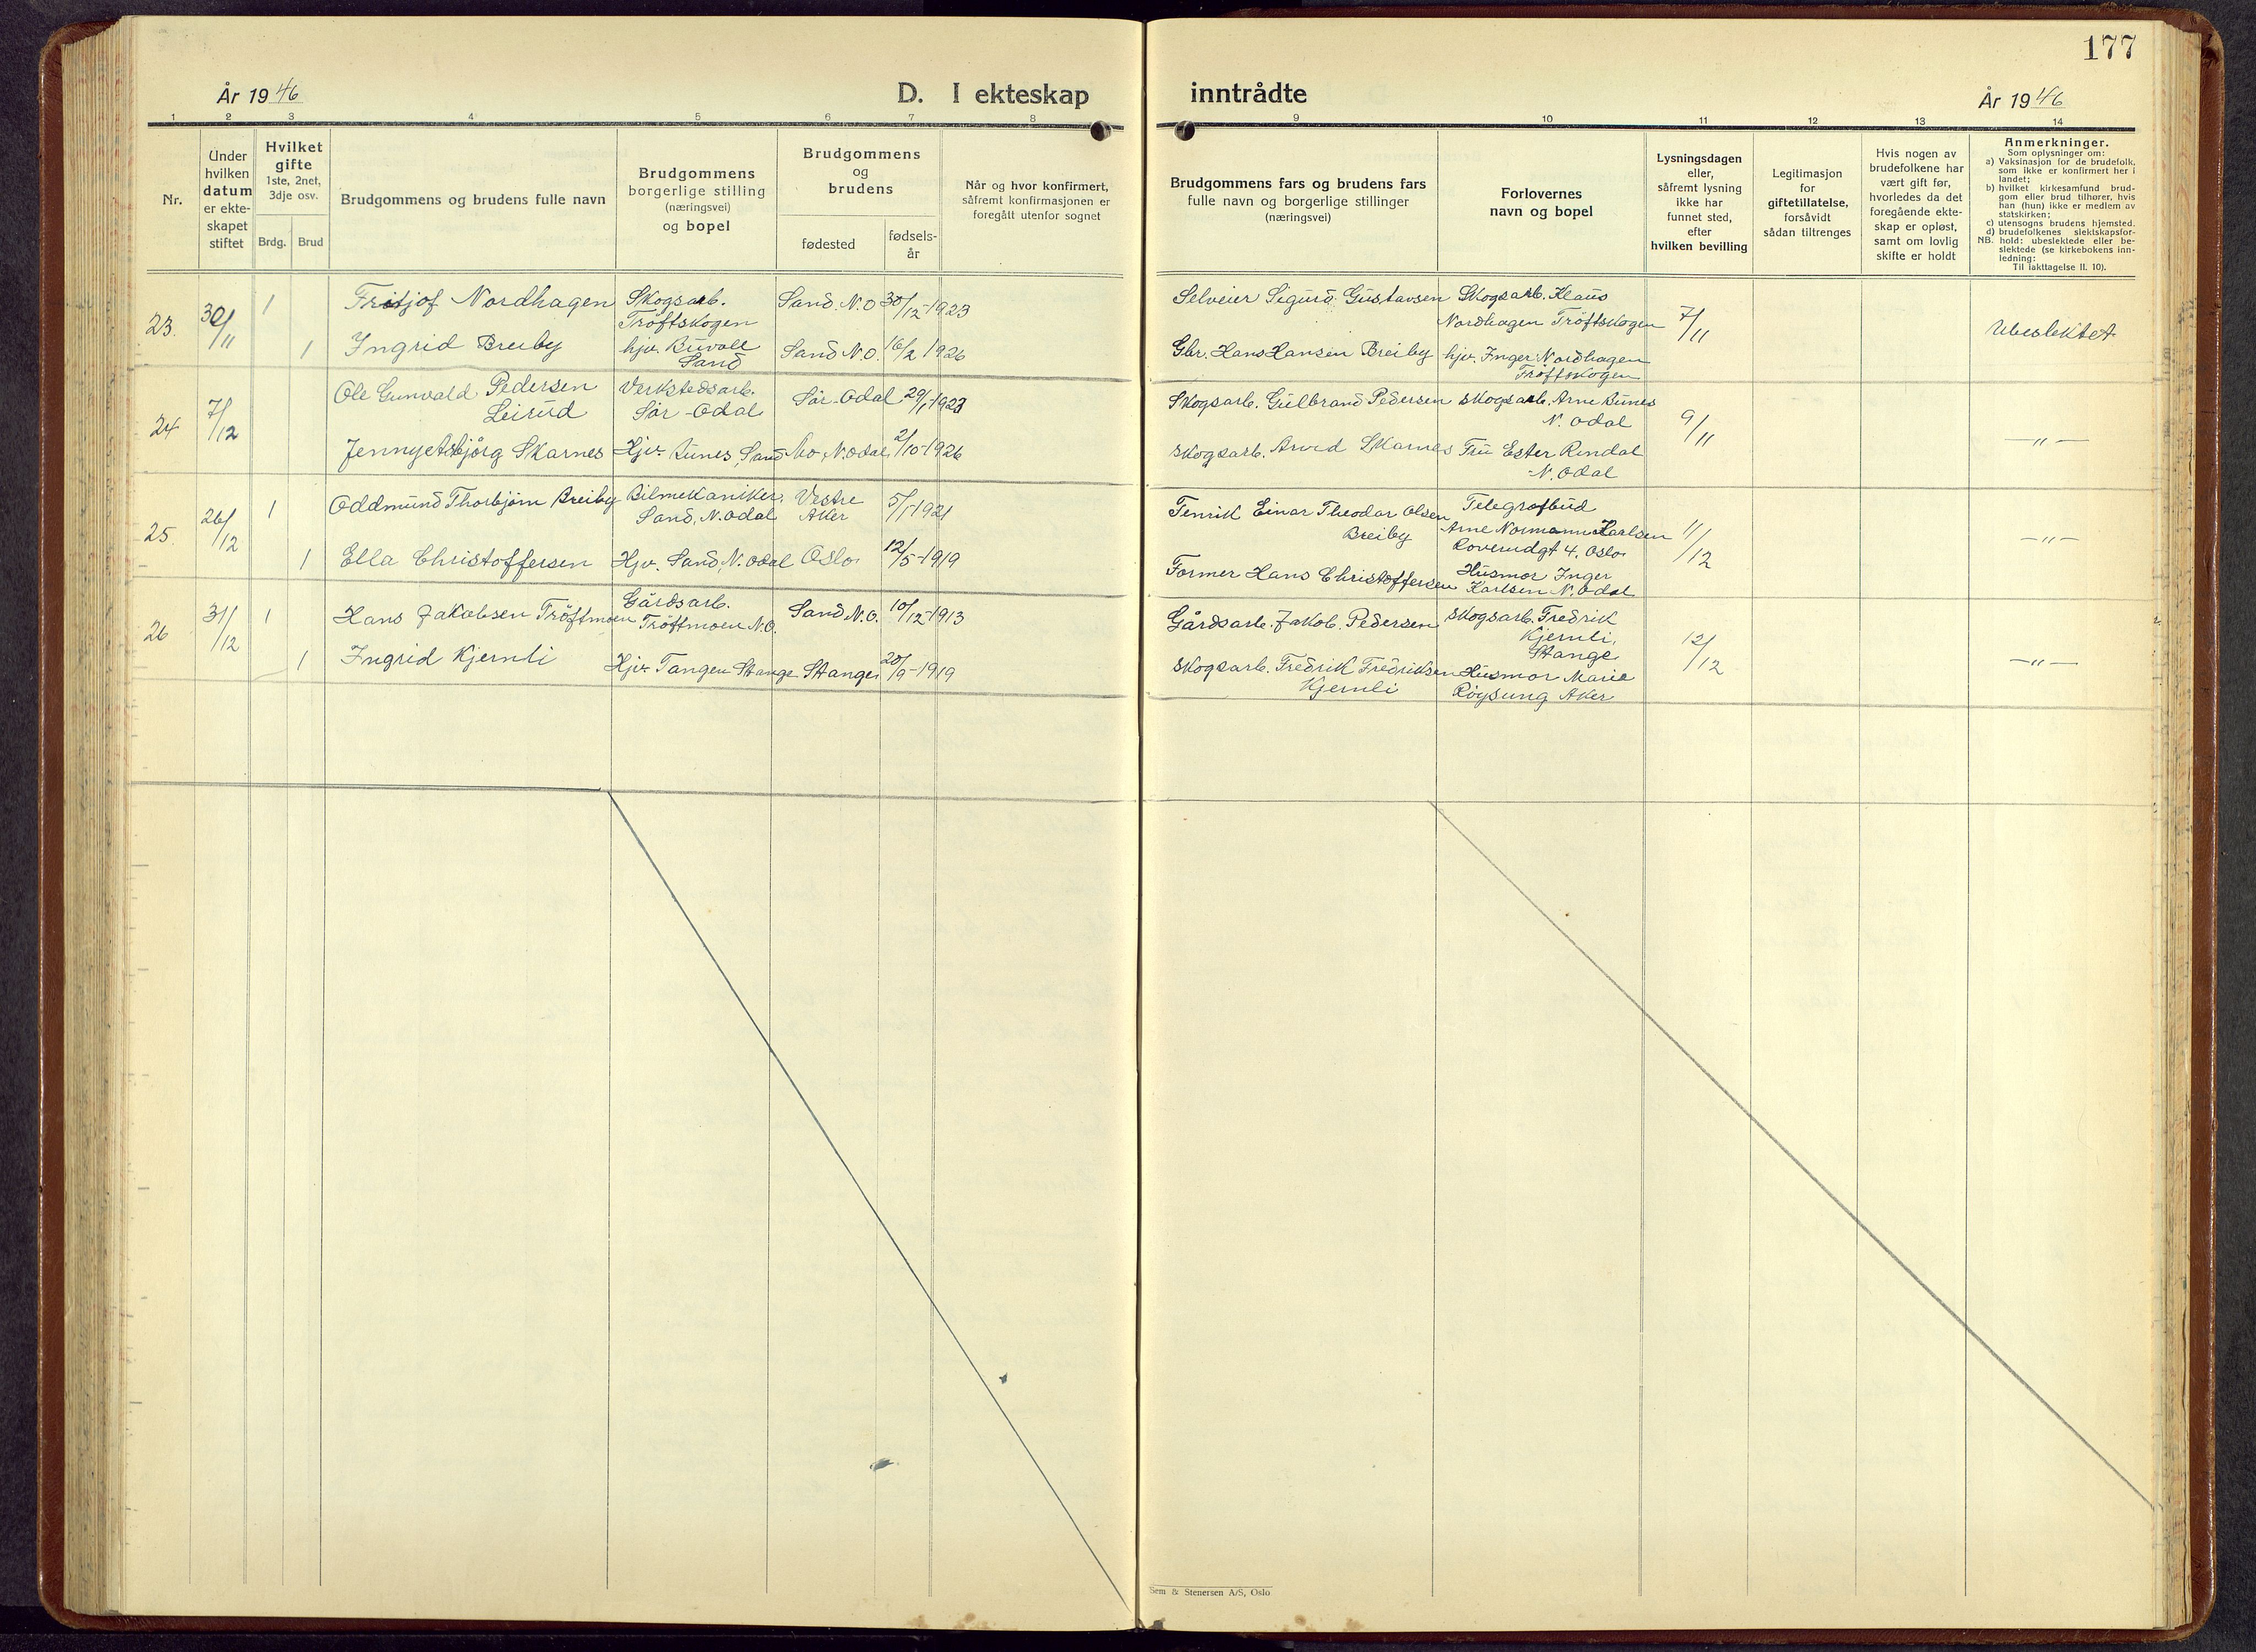 177
År 1946
D. I ekteskap inntrådte
År 1946
1 2 3 4 5 6 7 8 9 10 11 12 13 14
Nr.
Under
hvilken
datum
er ekte-
skapet
stiftet
Hvilket
gifte
1ste, 2net,
3dje osv.
Brdg. Brud
Brudgommens og brudens fulle navn
Brudgommens
borgerlige stilling
(næringsvei)
og bopel
Brudgommens
og
brudens
fødested
fødsels-
år
Når og hvor konfirmert,
såfremt konfirmasjonen er
foregått utenfor sognet
Brudgommens fars og brudens fars
fulle navn og borgerlige stillinger
(næringsvei)
Forlovernes
navn og bopel
Lysningsdagen
eller,
såfremt lysning
ikke har
funnet sted,
efter
hvilken bevilling
Legitimasjon
for
giftetillatelse,
forsåvidt
sådan tiltrenges
Hvis nogen av
brudefolkene har
vært gift før,
hvorledes da det
foregående ekte-
skap er opløst,
samt om lovlig
skifte er holdt
Anmerkninger.
Som oplysninger om:
a) Vaksinasjon for de brudefolk,
som ikke er konfirmert her i
landet;
b) hvilket kirkesamfund brud-
gom eller brud tilhører, hvis
han (hun) ikke er medlem av
statskirken;
c) utensogns brudens hjemsted.
d) brudefolkenes slektskapsfor-
NB. hold: ubeslektede eller be-
slektede (se kirkebokens inn-
ledning:
Til iakttagelse II. 10).
23.
30/11
1
Fritjof Nordhagen
Skogsarb.
Tröftskogen
Sand. N.O
30/12-1923
1
Ingrid Breiby
hjv. Buvold
Sand
Sand N.O.
16/2 1926
Selveier Sigurd Gustavsen
Skogsarb. Klaus
Nordhagen Tröftskogen
Gbr. Hans Hansen Breiby
hjv. Inger Nordhagen
Tröftskogen
7/11
Ubeslektet
24
7/12
Ole Gunvald Pedersen
Leirud
Verkstedsarb.
Sør-Odal
Sør-Odal
29/1-1923
Jenny Asbjörg Skarnes
Hjv. Bunes, Sand
Mo, N. Odal
2/10-1926
Skogsarb. Gulbrand Pedersen
Skogsarb. Arne Bunes
N. Odal
Skogsarb. Arvid Skarnes
Fru Ester Rendal
N. Odal
9/11
—"—
25.
26/12
1
Oddmund Thorbjørn Breiby
Bilmekaniker
Sand, N. Odal
Vestre
Aker
5/1 1921
1
Ella Christoffersen
Hjv. Sand, N. Odal
Oslo
12/5-1919
Fenrik Einar Theodor Olsen
Breiby
Telegrafbud
Arne Normann Karlsen
4. Oslo
Former Hans Christoffersen
Husmor Inger
Karlsen N. Odal
11/12
—"—
26
31/12
1
Hans Jakobsen Tröftmoen
Gårdsarb.
Tröftmoen N.O.
Sand N.O.
10/12-1913
1
Ingrid Kjernli
Hjv. Tangen Stange
Stange
20/9-1919
Gårdsarb. Jakob Pedersen
Skogsarb. Fredrik
Kjernli,
Stange
Skogsarb. Fredrik Fredriksen
Kjernli
Husmor Marie
Aker
12/12
—"—
Sem & Stenersen A/S, Oslo